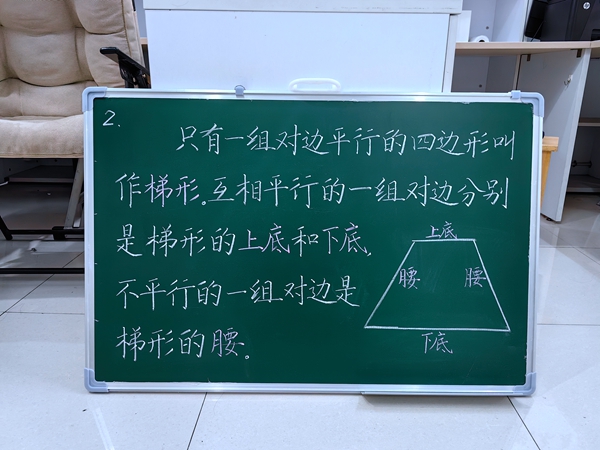 2.
只有一组对边平行的四边形叫
作梯形。互相平行的一组对边分别
是梯形的上底和下底,
不平行的一组对边是
梯形的腰。
上底
腰 腰
下底